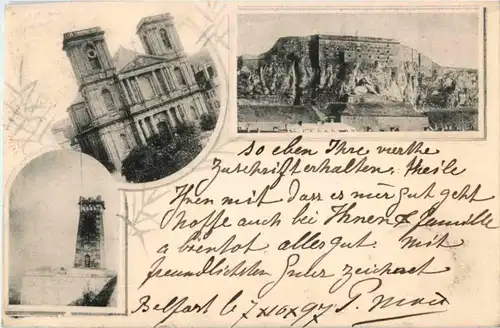 so eben Ihre werthe
Zuschrift erhalten, theile
Ihnen mit dass es mir gut geht
hoffe auch bei Ihnen & familie
a bientot alles gut. Mit
freundlichsten Gruss zeichnet
Belfort le 7 XI 0 97 P.